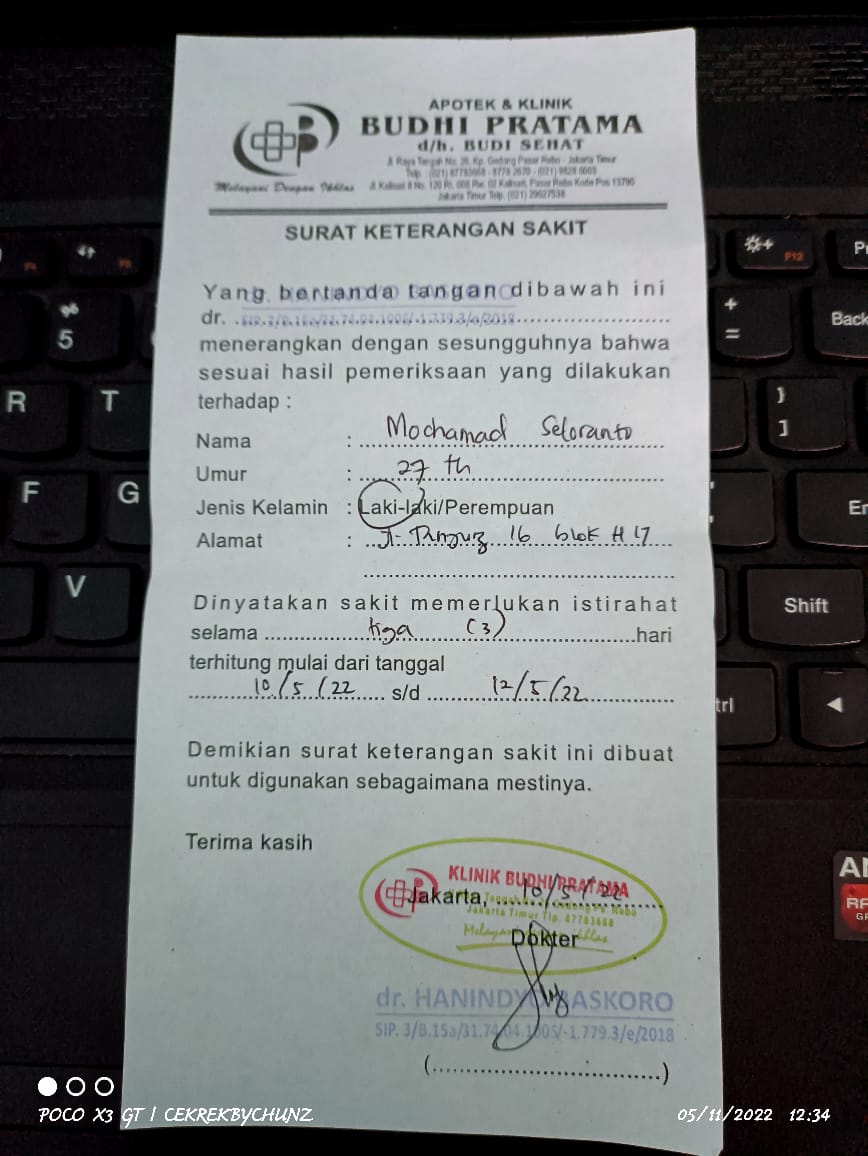 APOTEK & KLINIK
BUDHI PRATAMA
d/h. BUDI SEHAT
Jl. Raya Tengah No. 26, Kp. Gedong Pasar Rebo - Jakarta Timur
Telp. : (021) 87783668 - 8778 2670 - (021) 9828 6605
Melayani Dengan Ikhlas
Jl. Kalisari II No. 120 Rt. 008 Rw. 02 Kalisari, Pasar Rebo Kode Pos 13790
Jakarta Timur Telp. (021) 29627538
SURAT KETERANGAN SAKIT
Yang bertanda tangan dibawah ini
dr. SIP. 3/B.15a/31.74.04.1005/-1.779.3/e/2018
menerangkan dengan sesungguhnya bahwa
sesuai hasil pemeriksaan yang dilakukan
terhadap :
Nama : Mochamad Seloranto
Umur : 27 th
Jenis Kelamin : Laki-laki/Perempuan
Alamat : Jl. 16 blok H 17
Dinyatakan sakit memerlukan istirahat
selama tiga (3) hari
terhitung mulai dari tanggal
10/5/22 s/d 12/5/22
Demikian surat keterangan sakit ini dibuat
untuk digunakan sebagaimana mestinya.
Terima kasih
KLINIK BUDHI PRATAMA
Jakarta, 10/5/22
Jakarta Timur Tlp. 87783668
Dokter
dr. HANINDYO BASKORO
SIP. 3/B.15a/31.74.04.1005/-1.779.3/e/2018
(..............................)
POCO X3 GT | CEKREKBYCHUNZ
05/11/2022 12:34
%
5
R
T
F
G
V
F12
+
=
Back
}
]
Shift
trl